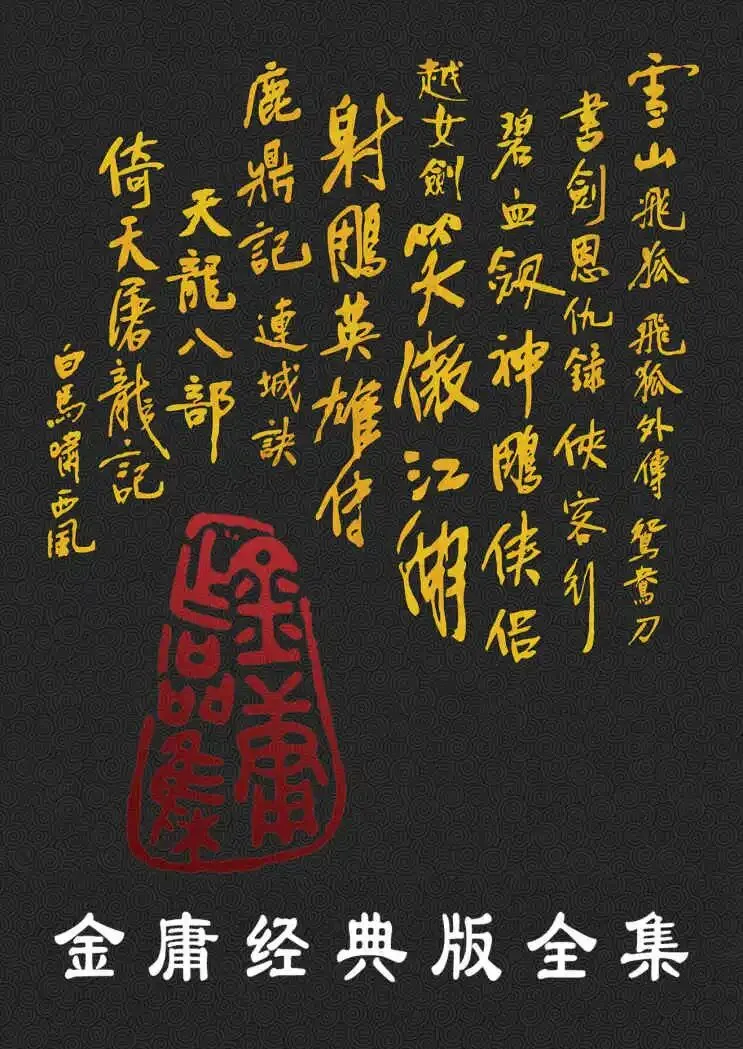 雪山飛狐 飛狐外傳 鴛鴦刀
書劍恩仇錄 俠客行
碧血劔 神鵰侠侣
越女劍 笑傲江湖
射鵰英雄传
鹿鼎記 連城訣
天龍八部
倚天屠龍記
白馬嘯西風
金庸
作品集
金庸经典版全集